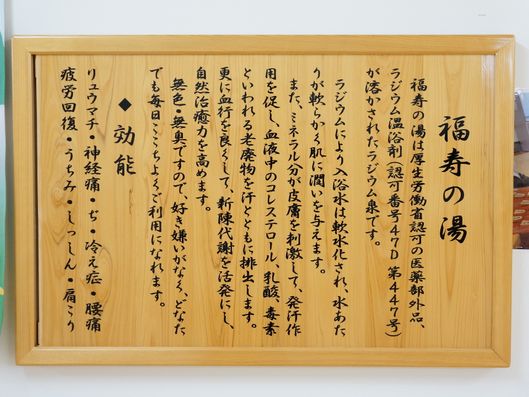 福寿の湯
福寿の湯は厚生労働省認可の医薬部外品、
ラジウム温浴剤(認可番号47D 第447号)
が溶かされたラジウム泉です。
ラジウムにより入浴水は軟水化され、水あた
りが軟らかく肌に潤いを与えます。
また、ミネラル分が皮膚を刺激して、発汗作
用を促し、血液中のコレステロール、乳酸、毒素
といわれる老廃物を汗とともに排出します。
更に血行を良くして、新陳代謝を活発にし、
自然治癒力を高めます。
無色・無臭ですので、好き嫌いがなく、どなた
でも毎日ここちよくご利用になれます。
◆ 効能
リュウマチ・神経痛・ぢ・冷え症・腰痛
疲労回復・うちみ・しっしん・肩こり